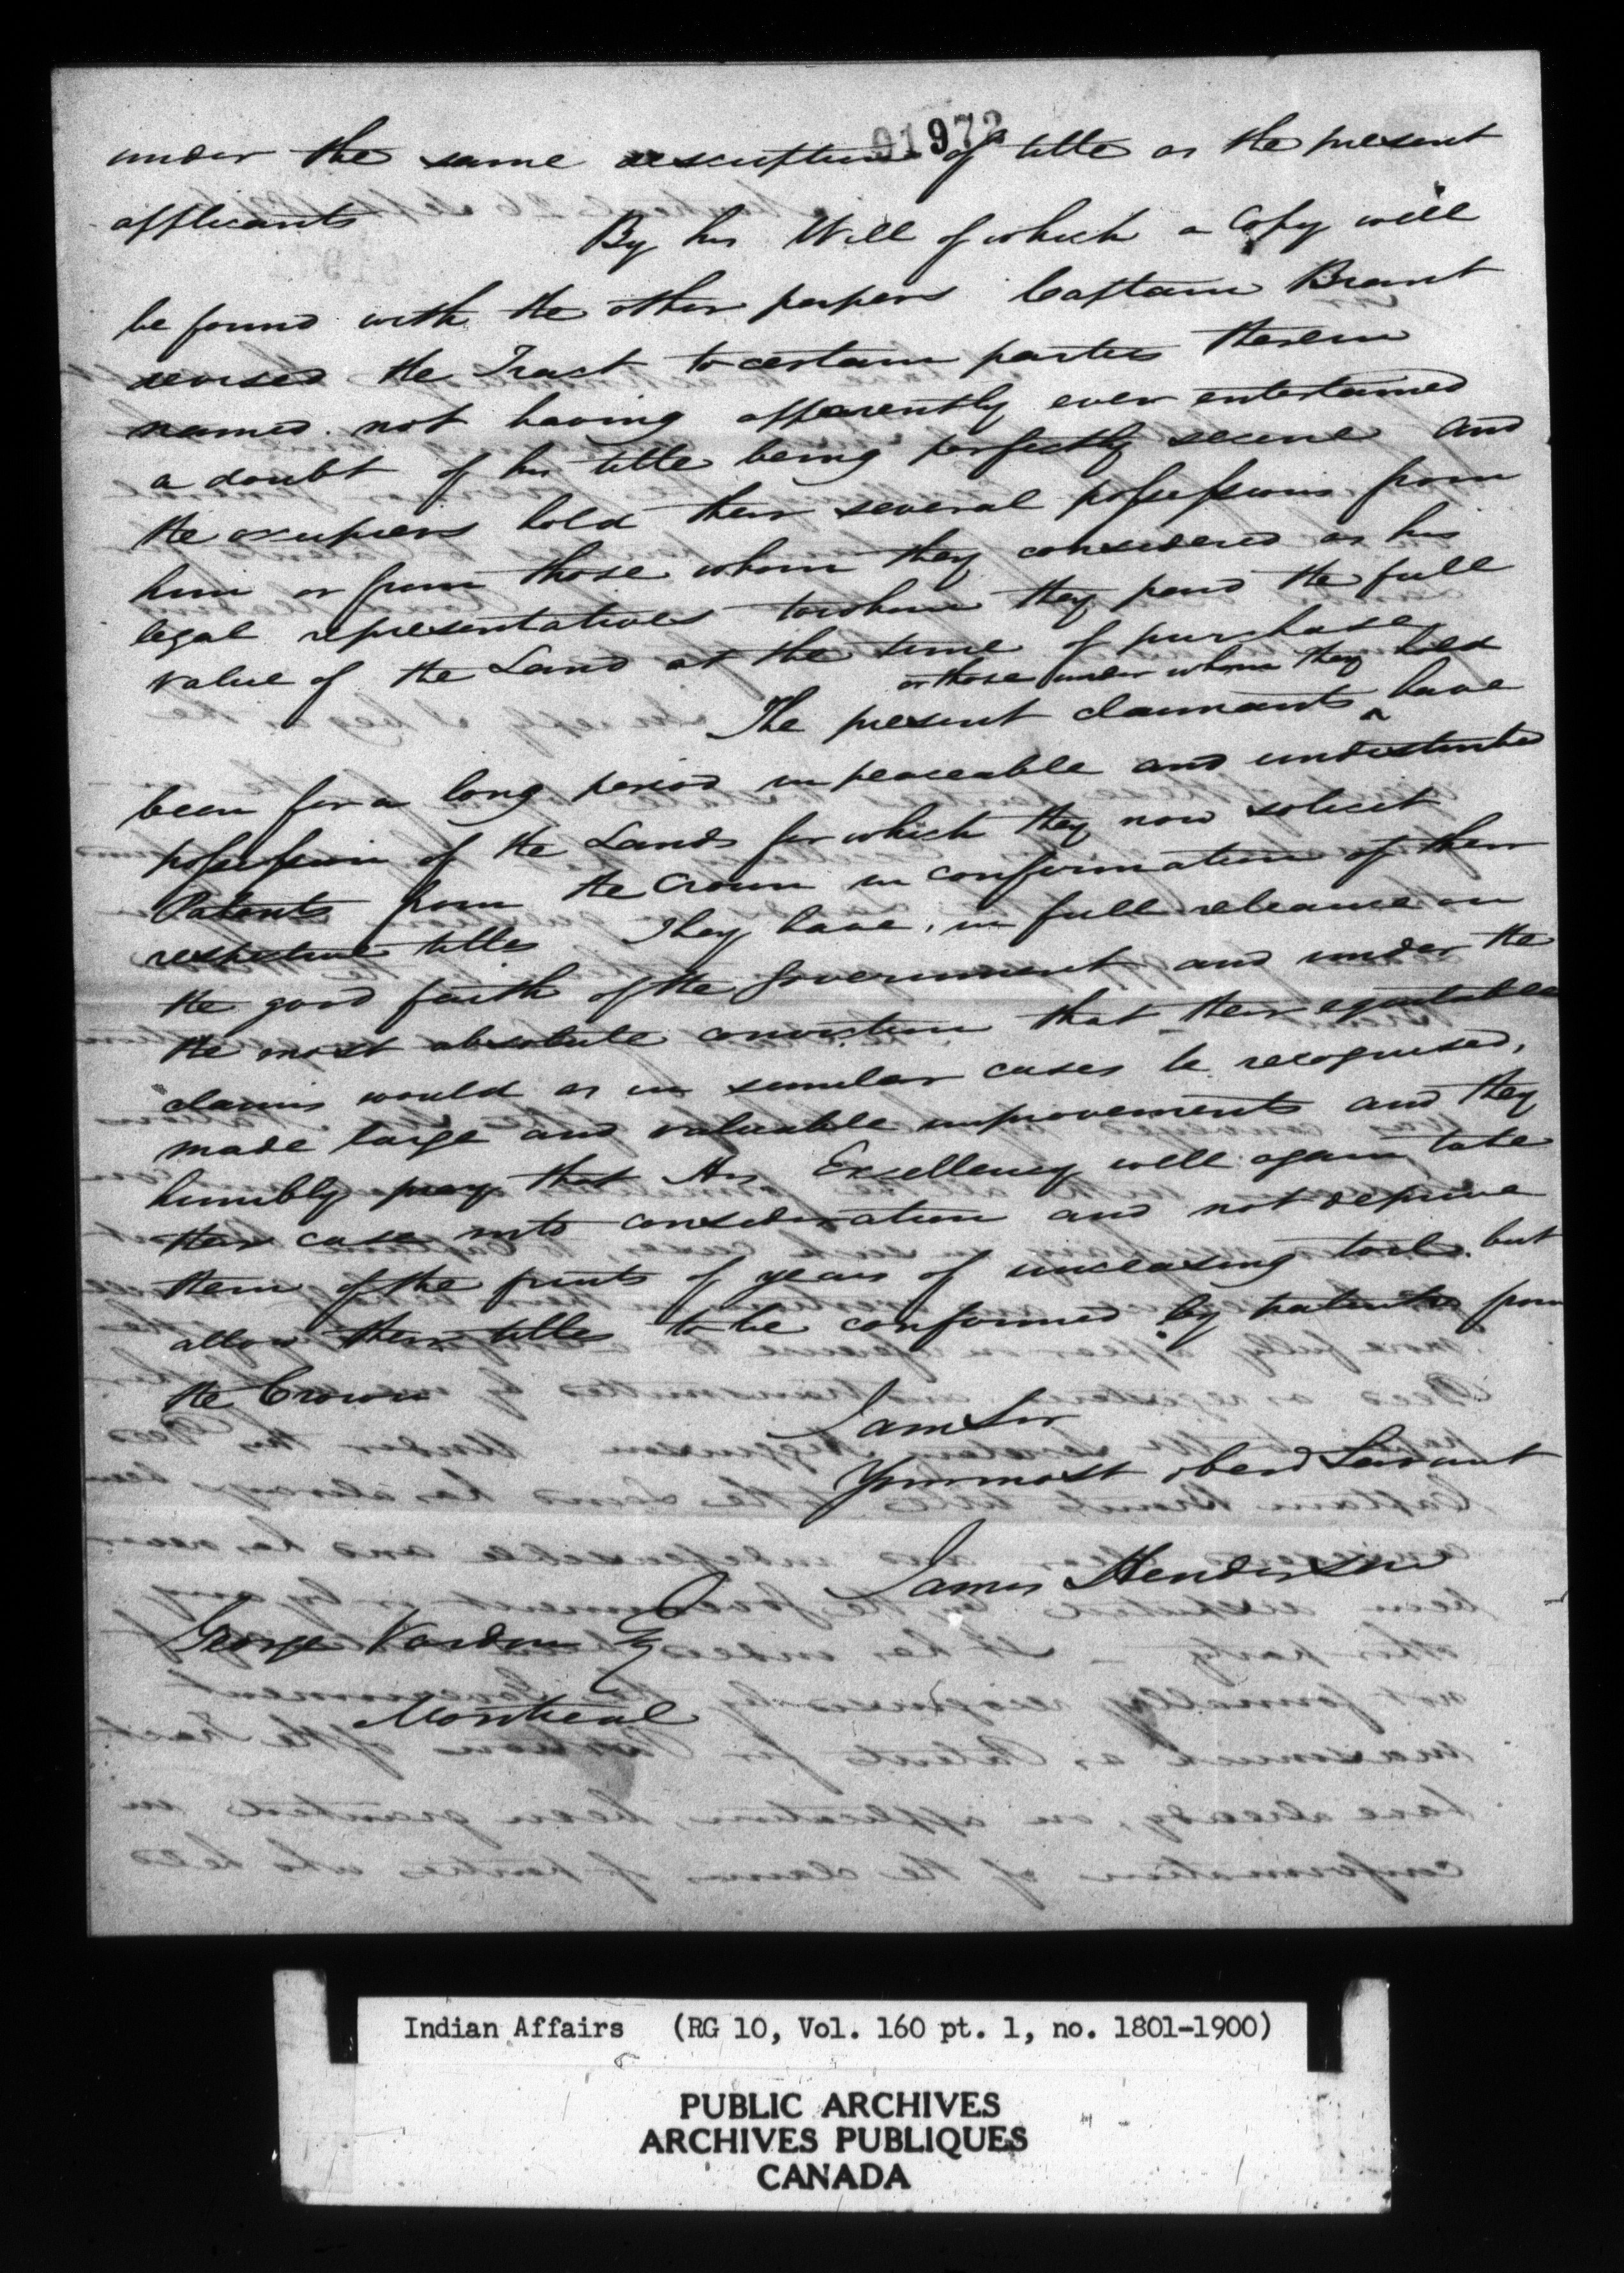 01972
under the same description of title as the present
applicants
By his Will of which a Copy will
be found with the other papers Captain Brant
devised the Tract to certain parties therein
named. not having apparently ever entertained
a doubt of his title being perfectly secure and
the occupiers hold their several possessions from
him or from those whom they considered as his
legal representatives to whom they paid the full
value of the Land at the time of purchase
or those under whom they hold
The present claimants ^ have
been for a long period in peaceable and undisturbed
possession of the Lands for which they now solicit
Patents from the Crown in confirmation of their
respective titles They have, in full reliance on
the good faith of the Government and under the
the most absolute conviction that their equitable
claims would as in similar cases be recognised,
made large and valuable improvements and they
humbly pray that His Excellency will again take
their case into consideration and not deprive
them of the fruits of years of unceasing toil. but
allow their titles to be confirmed by patents from
the Crown
I am Sir
Your most obed Servant
James Henderson
George Vardon Esq
Montreal
Indian Affairs (RG 10, Vol. 160 pt. 1, no. 1801-1900)
PUBLIC ARCHIVES
ARCHIVES PUBLIQUES
CANADA